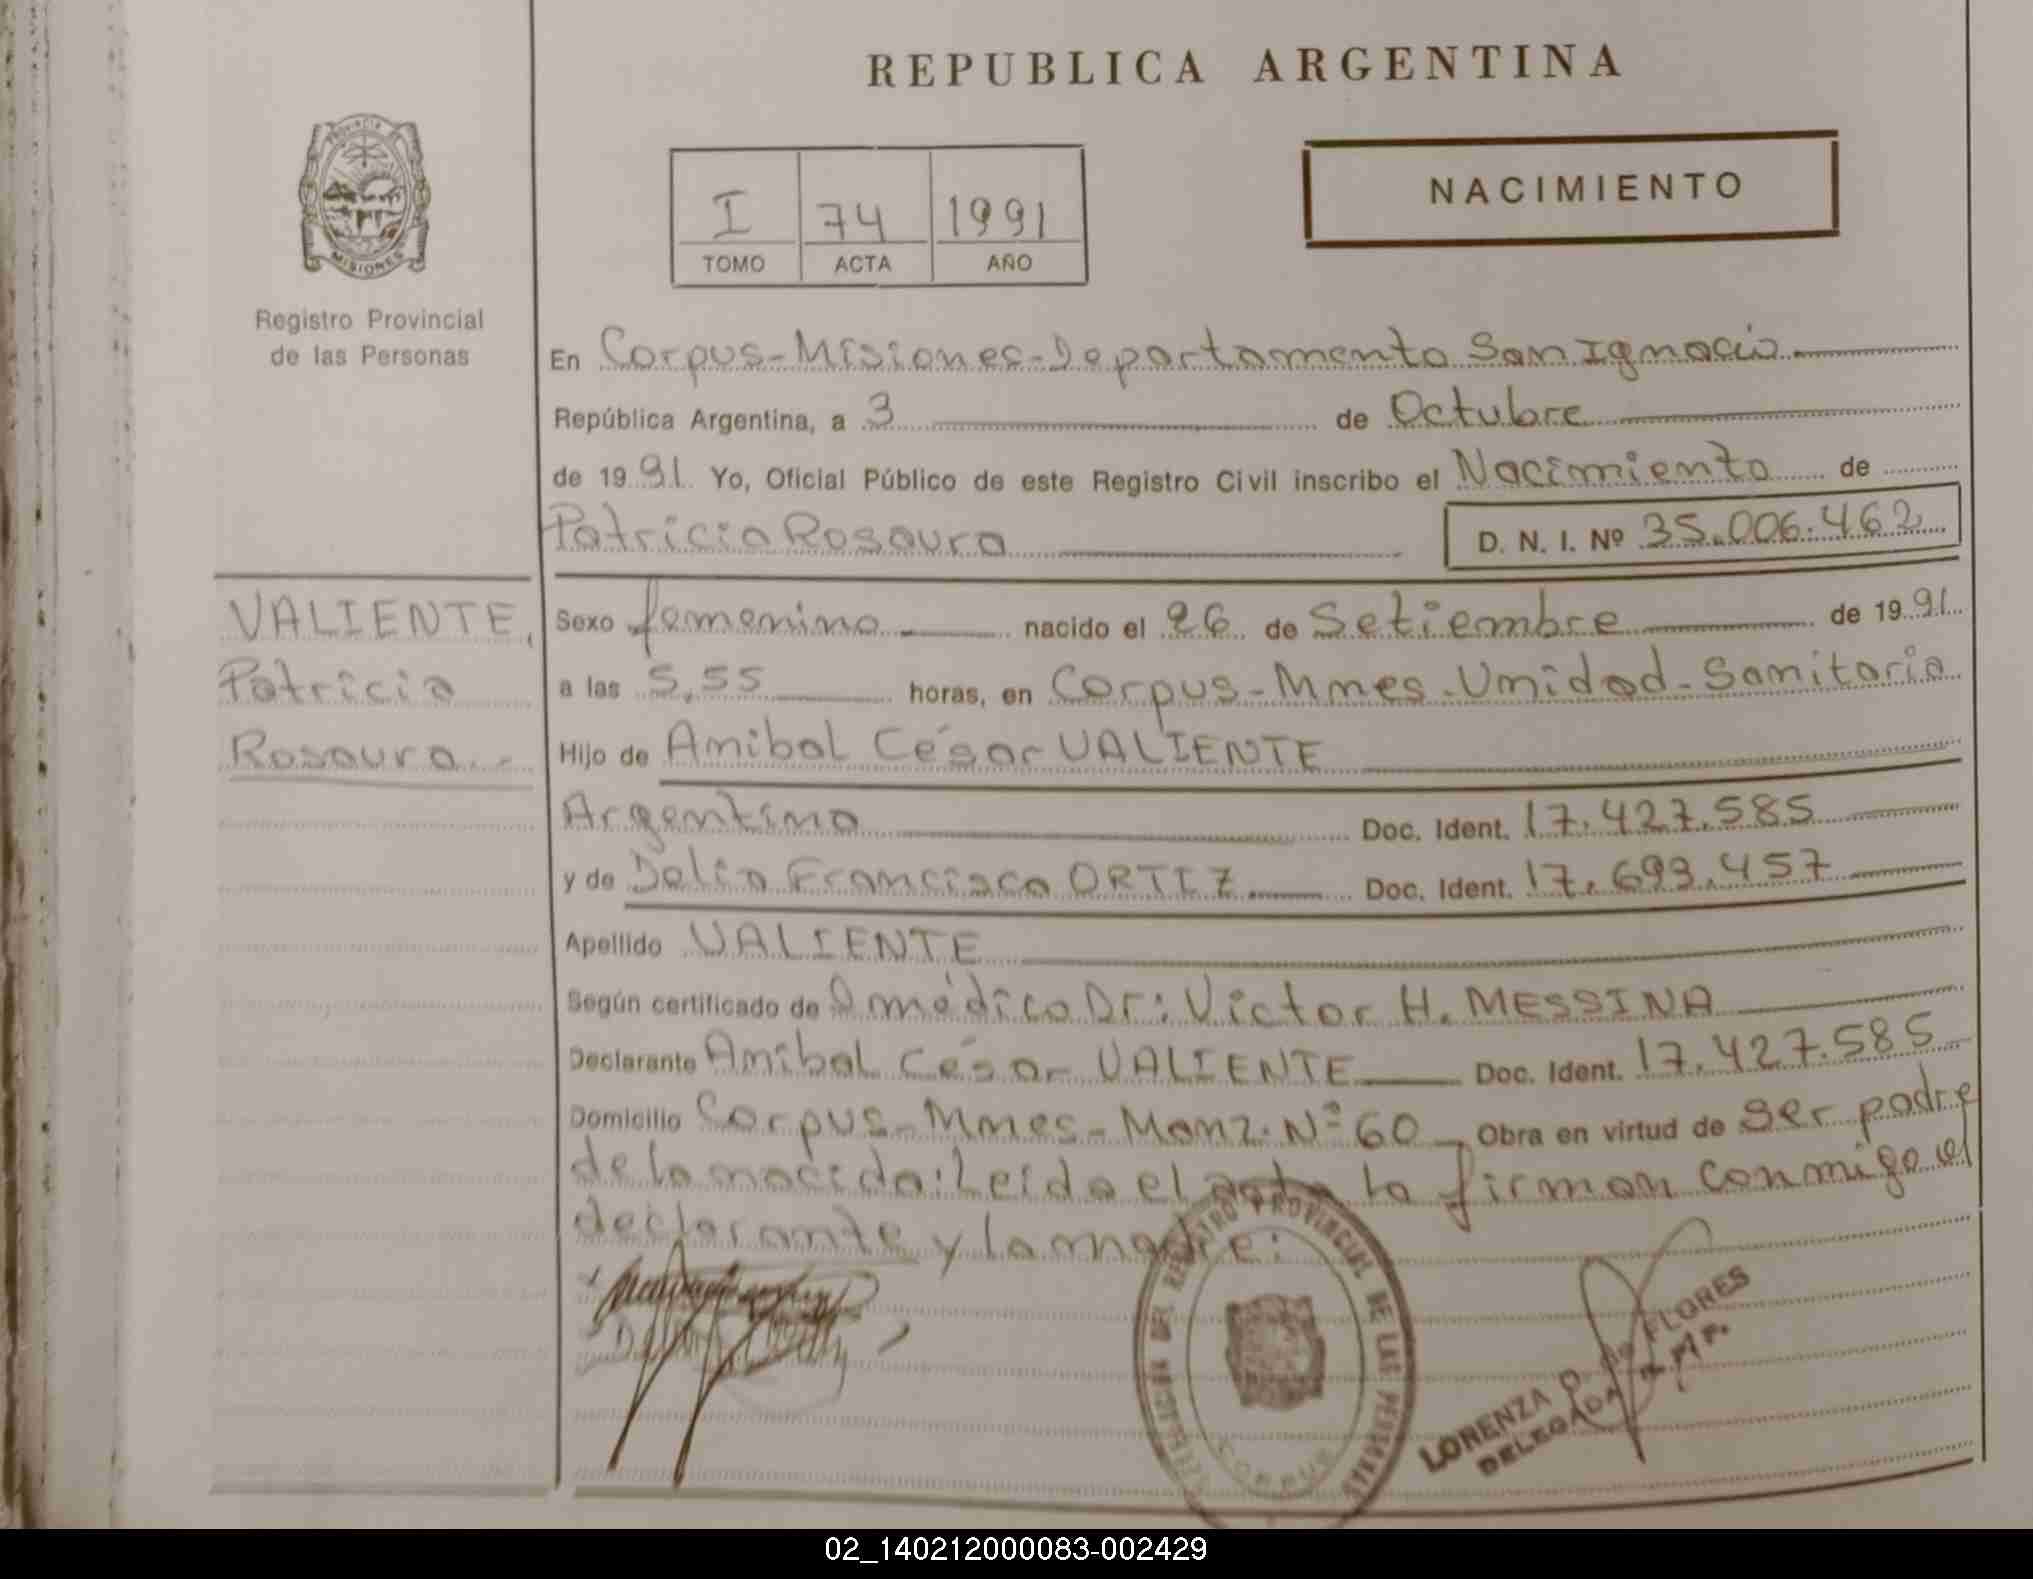 REPUBLICA ARGENTINA
PROVINCIA DE
MISIONES
Registro Provincial
de las Personas
I 74 1991
TOMO ACTA AÑO
NACIMIENTO
En Corpus-Misiones-Departamento San Ignacio
República Argentina, a 3 de Octubre
de 1991 Yo, Oficial Público de este Registro Civil inscribo el Nacimiento de
Patricia Rosaura D. N. I. Nº 35.006.462
VALIENTE,
Patricia
Rosaura.-
Sexo femenino nacido el 26 de Setiembre de 1991
a las 5,55 horas, en Corpus-Mnes-Unidad-Sanitaria
Hijo de Anibal César VALIENTE
Argentino Doc. Ident. 17.427.585
y de Delia Francisca ORTIZ Doc. Ident. 17.693.457
Apellido VALIENTE
Según certificado de médico Dr: Victor H. MESSINA
Declarante Anibal César VALIENTE Doc. Ident. 17.427.585
Domicilio Corpus-Mnes-Manz. Nº 60 Obra en virtud de ser padre
de la nacida: Leida el acta la firman conmigo el
declarante y la madre:
REGISTRO PROVINCIAL DE LAS PERSONAS
CORPUS
LORENZA O. de FLORES
DELEGADA
02_140212000083-002429